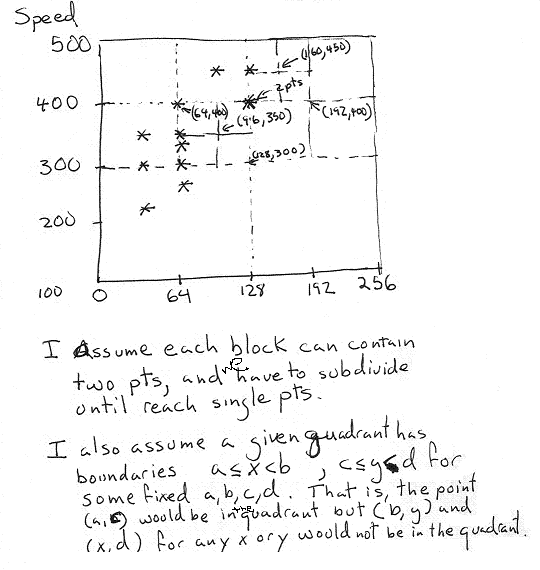 Speed
500
(160,450)
2pts
400
(64,400)
(96,350)
(192,400)
(128,300)
300
200
100
0
64
128
192
256
I Assume each block can contain
two pts, and we have to subdivide
until reach single pts.
I also assume a given quadrant has
boundaries a≤x<b , c≤y<d for
some fixed a,b,c,d. That is, the point
(a,c) would be in the quadrant but (b,y) and
(x,d) for any x or y would not be in the quadrant.